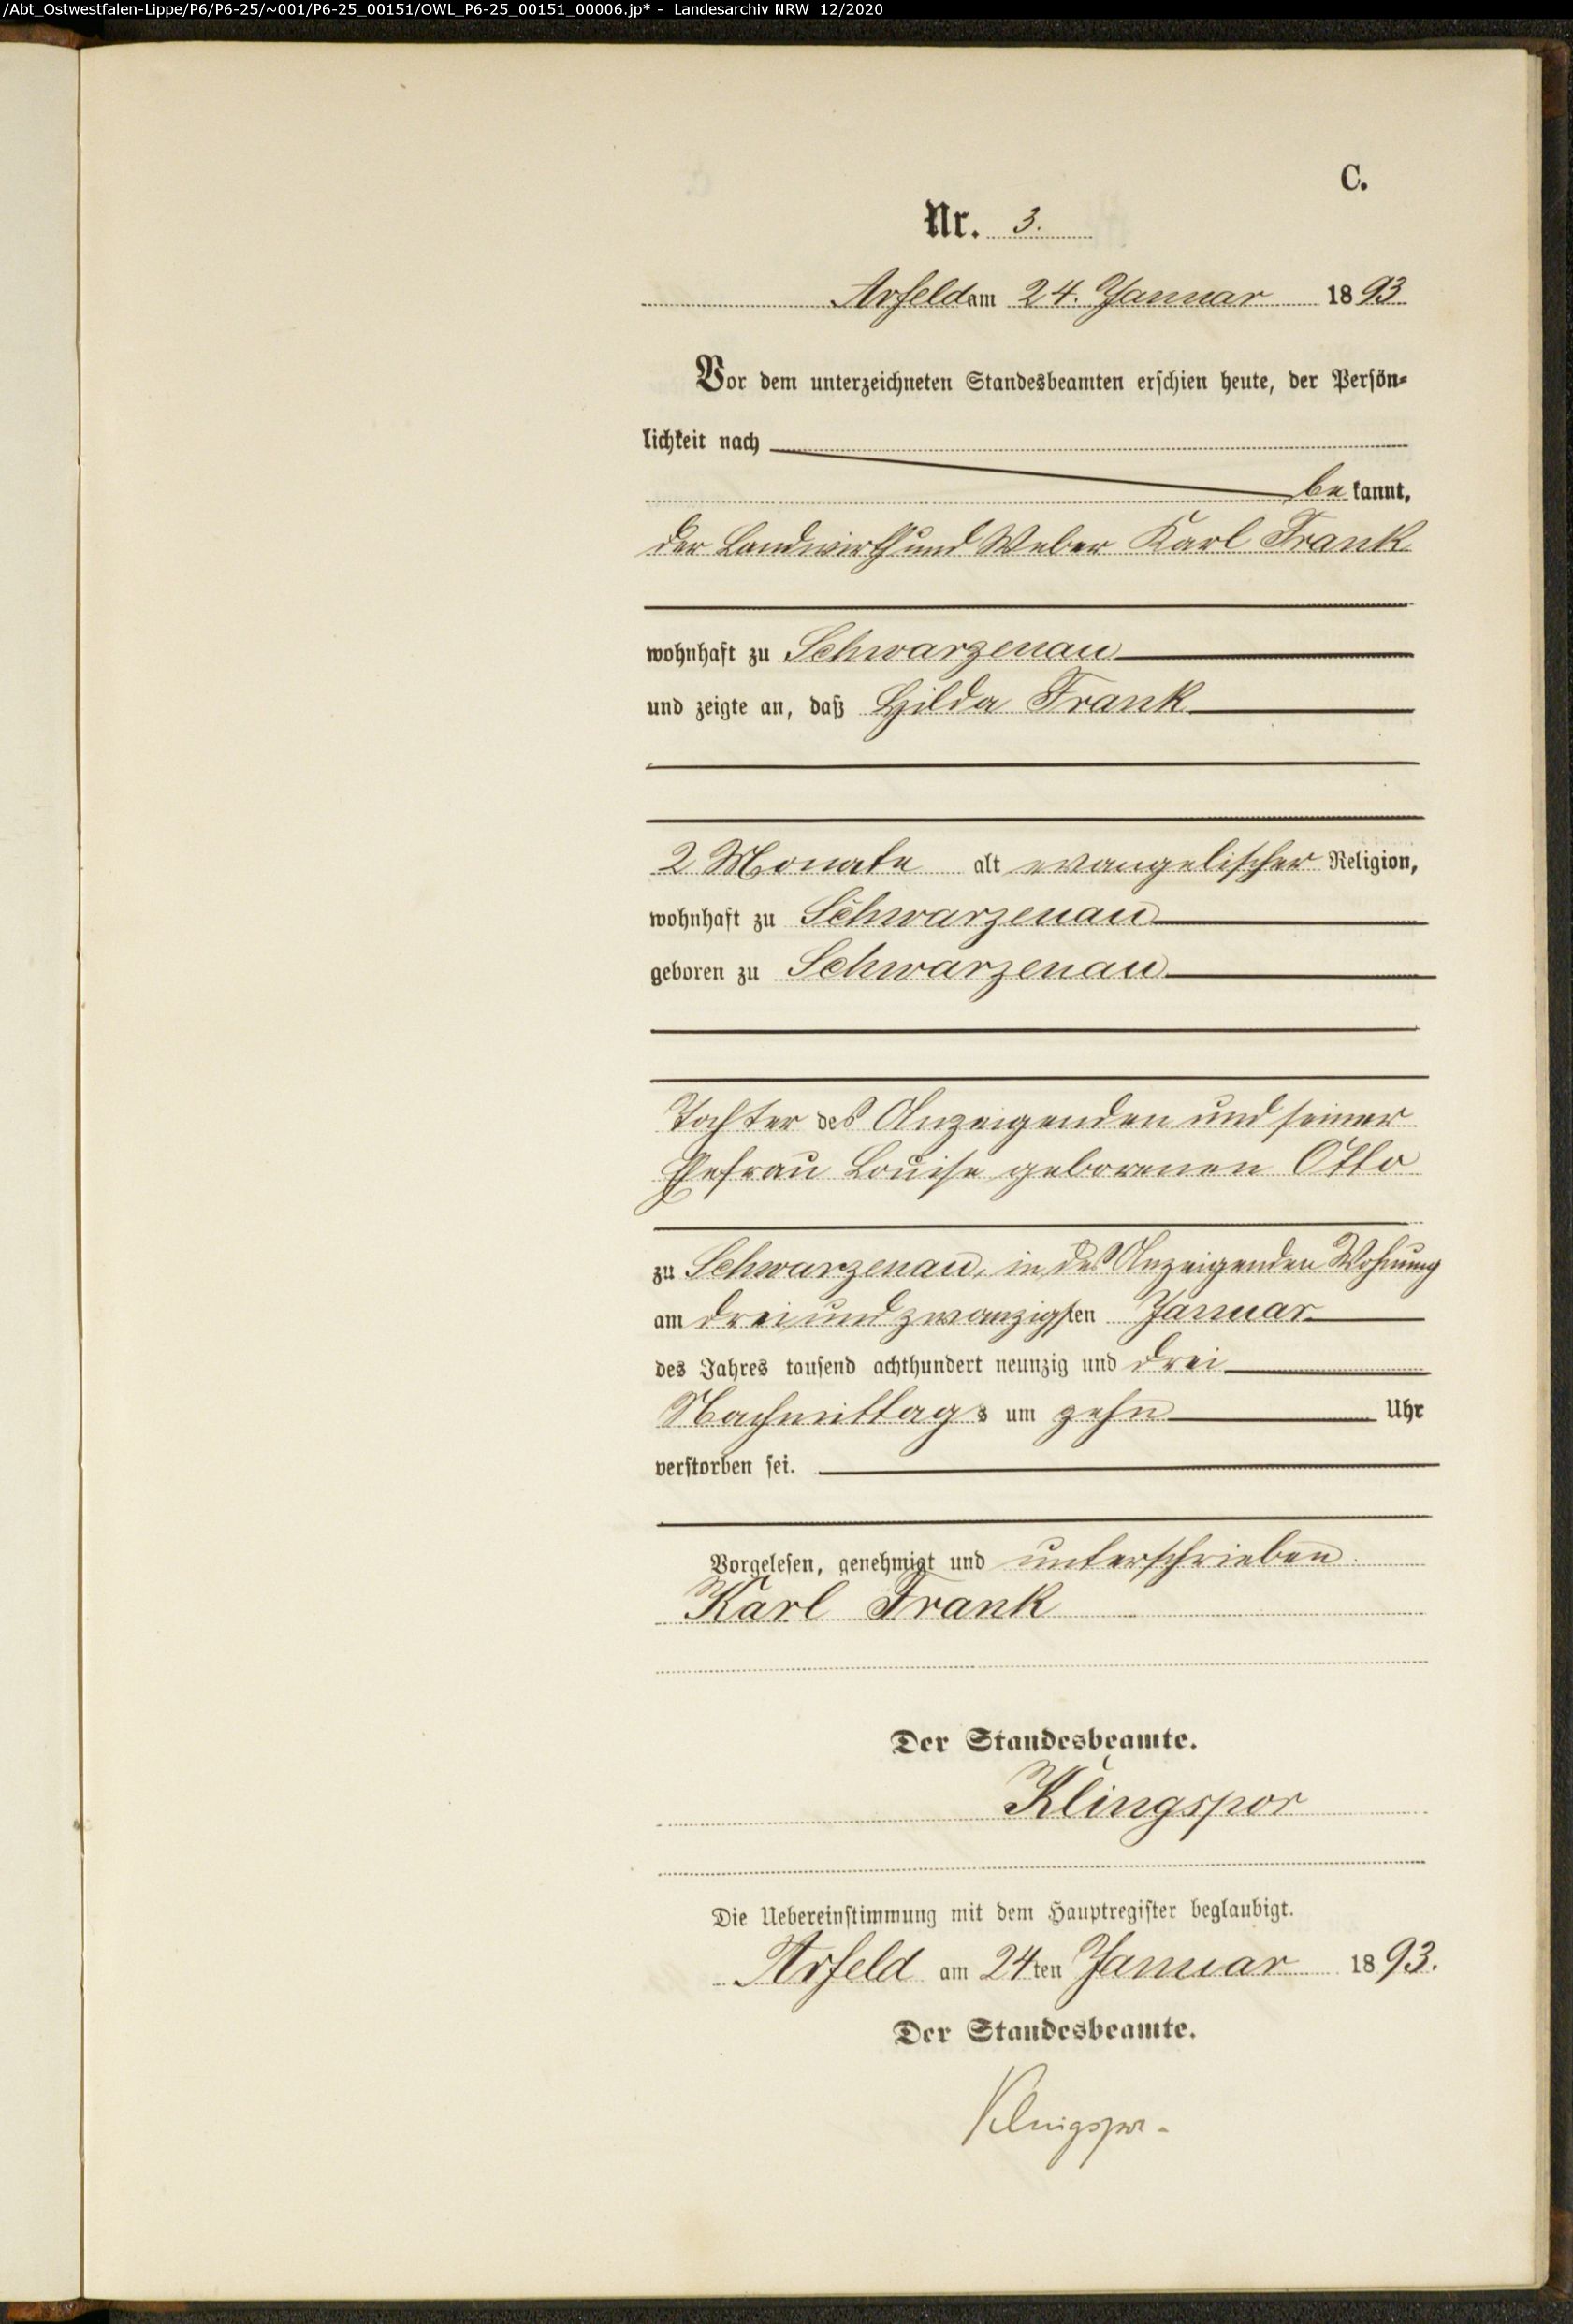 /Abt_Ostwestfalen-Lippe/P6/P6-25/~001/P6-25_00151/OWL_P6-25_00151_00006.jp* - Landesarchiv NRW 12/2020
C.
Nr. 3.
Arfeld am 24. Januar 1893
Vor dem unterzeichneten Standesbeamten erschien heute, der Persön-
lichkeit nach
bekannt,
der Landwirth und Weber Karl Frank
wohnhaft zu Schwarzenau
und zeigte an, daß Hilda Frank
2 Monate alt evangelischer Religion,
wohnhaft zu Schwarzenau
geboren zu Schwarzenau
Tochter des Anzeigenden und seiner
Ehefrau Louise geborenen Otto
zu Schwarzenau, in des Anzeigenden Wohnung
am drei und zwanzigsten Januar
des Jahres tausend achthundert neunzig und drei
Nachmittags um zehn Uhr
verstorben sei.
Vorgelesen, genehmigt und unterschrieben.
Karl Frank
Der Standesbeamte.
Klingspor
Die Uebereinstimmung mit dem Hauptregister beglaubigt.
Arfeld am 24ten Januar 1893.
Der Standesbeamte.
Klingspor.